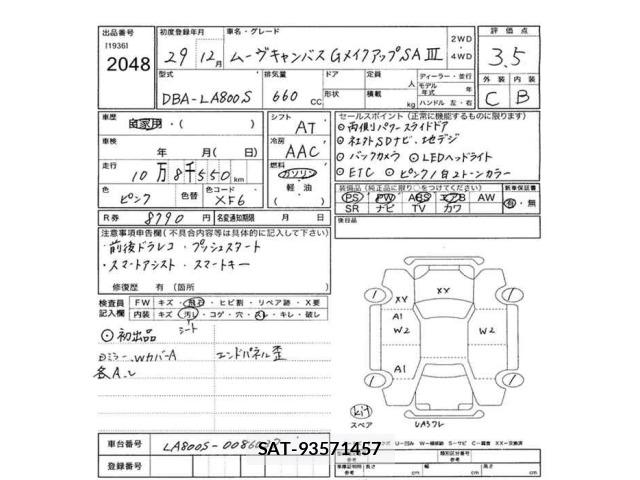 出品番号 初度登録年月 車名・グレード 2WD・4WD 評価点
[1936]
2048 29年 12月 ムーヴキャンバス GメイクアップSAⅢ 3.5
型式 排気量 ドア 定員 人 ディーラー・並行 外装 内装
DBA-LA800S 660 CC 形状 積載 kg モデル年式 年 ハンドル 左・右 C B
車歴 自家用・( ) シフト AT セールスポイント (正常に機能するものに限ります)
◎両側パワースライドドア
車検 年 月( 日) 冷房 AAC ◎社外SDナビ、地デジ
走行 10万8千550km 燃料 ガソリン 軽油 ( ) ◎バックカメラ ◎LEDヘッドライト
◎ETC ◎ピンク/白2トーンカラー
色 ピンク 色替 色コード XF6 装備品 (純正品に限り○をつけてください) 新車保証書
PS PW ABS エアB AW 有・無
SR ナビ TV カワ
R券 8790円 名変通知期限 月 日 後日品
注意事項申告欄(不具合内容等は具体的に記入して下さい)
・前後ドラレコ・プッシュスタート
・スマートアシスト・スマートキー
修復歴 有 (箇所 )
検査員記入欄 FW キズ・飛石・ヒビ割・リペア跡・X要
内装 キズ・汚レ・コゲ・穴・スレ・キレ・破レ
シート
◎初出品
エンドパネル歪
各A、U
XY XX
A1
W2 W2
A1
スペア
車台番号 LA800S-00860
SAT-93571457
登録番号
車両証明書 有効期限 類別区分番号 長さ cm 幅 cm 高さ cm